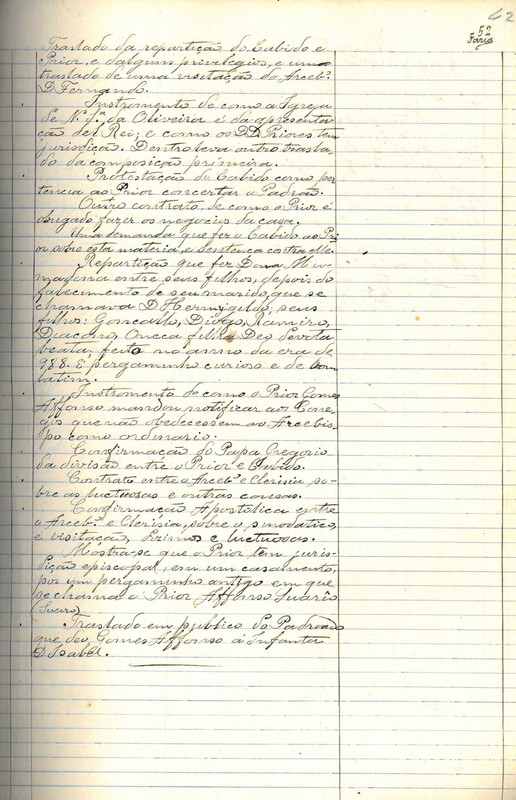 62
52
Faria
Traslado da repartição do Cabido e
Prior, e dalguns privilegios, e uma
traslado de uma visitação do Arcebº
D. Fernando.
Instromento de como a Igreja
de N. Sª da Oliveira é da apresenta-
ção del Rei; e como os DD. Priores tem
jurisdição. Dentro leva outro trasla-
do da composição primeira.
Protestação do Cabido como per-
tencia ao Prior concertar o Padrão.
Outro contrato de como o Prior é
obrigado fazer os negocios da casa.
Uma demanda que fez o Cabido ao Pri-
or sobre esta materia, e sentença contra elle.
Repartição que fez Dona Mu-
madona entre seus filhos, depois do
falecimento de seu marido, que se
chamava D. Hermigildo; seus
filhos: Goncallo, Diogo, Ramiro,
Onecca filha Deo devota
beata; feito no anno da era de
988. É pergaminho curioso e de bom
latim.
Instromento de como o Prior Gomes
Affonso mandou notificar aos Cone-
gos que não obedecessem ao Arcebis-
po como ordinario.
Confirmação do Papa Gregorio
da divisão entre o Prior e Cabido.
Contrato entre o Arcebº e Clerisia so-
bre as luctuosas e outras cousas.
Confirmação Apostolica entre
o Arcebº e Clerisia, sobre o sinodatico,
e visitação, disimos e luctuosas.
Móstra-se que o Prior tem juris-
dição episcopal, em um casamento,
por um pergaminho antigo em que
se chama o Prior Affonso Suario
(Suaro)
Traslado em publico do Padroado
que deu Gomes Affonso á Infanta
D. Isabel.